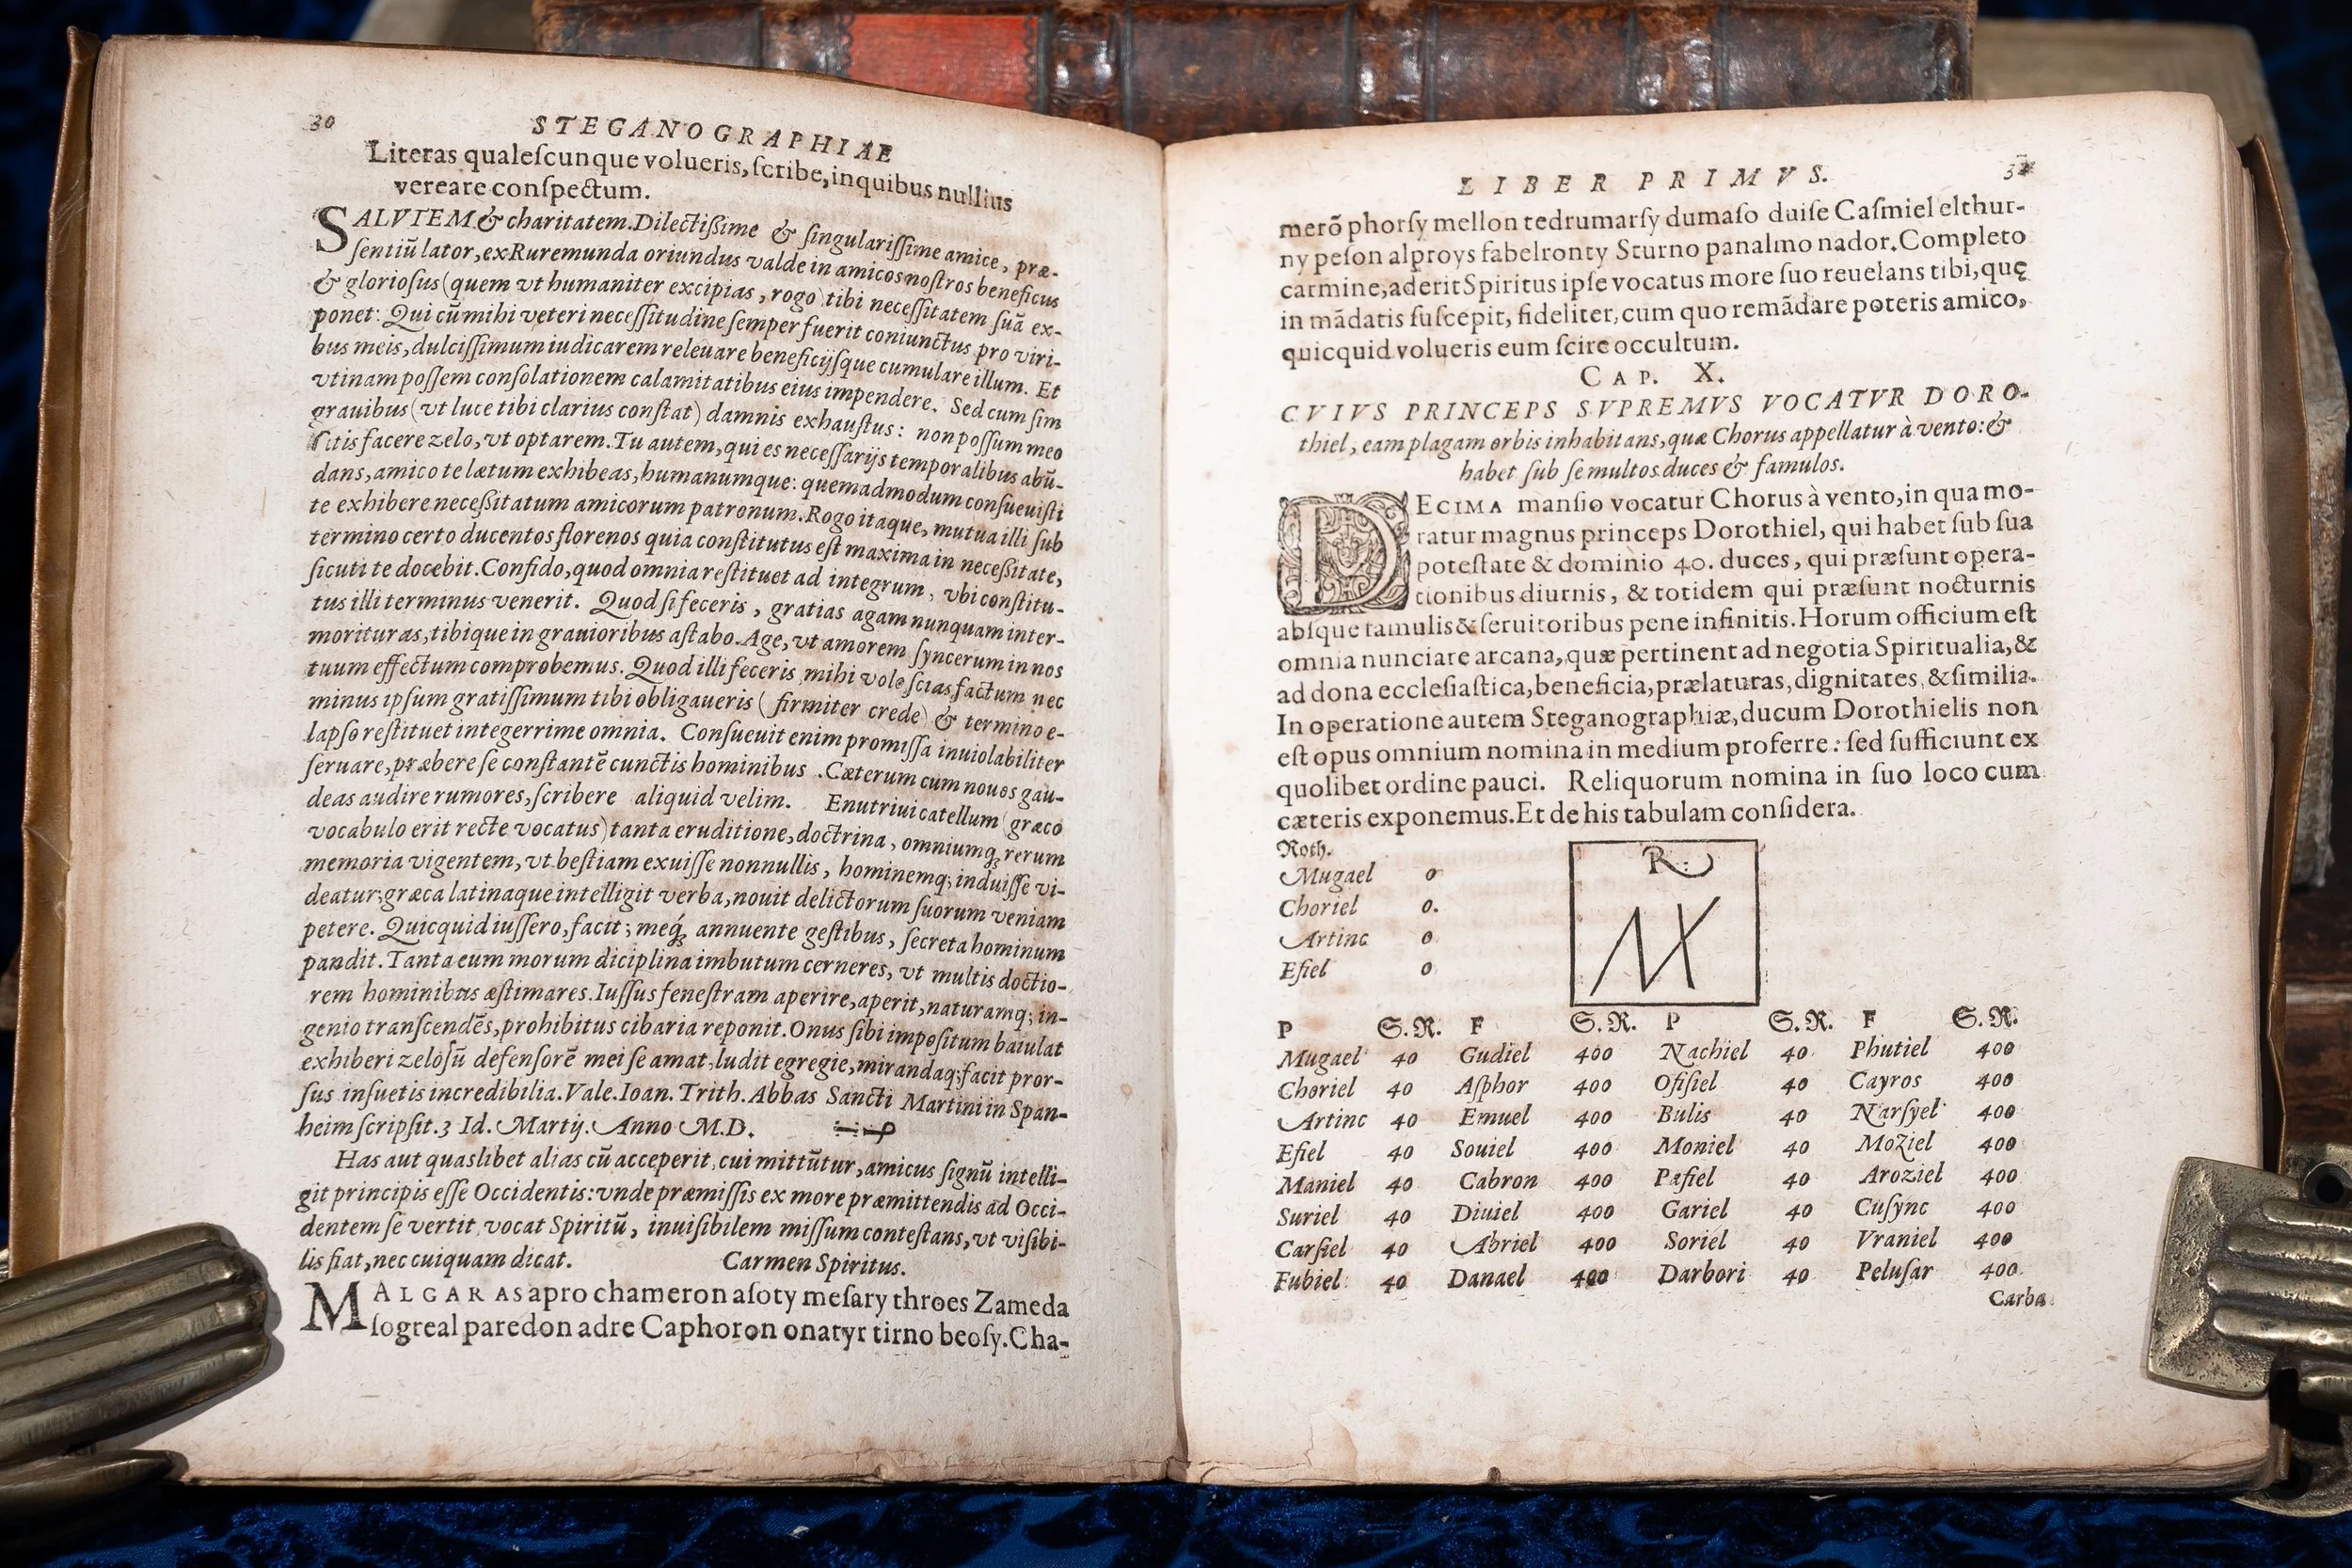 30
STEGANOGRAPHIAE
Literas qualeſcunque volueris, ſcribe, in quibus nullius
vereare conſpectum.
SALVTEM & charitatem. Dilectißime & ſingulariſſime amice, præ-
ſentiū lator, ex Ruremunda oriundus valde in amicos noſtros beneficus
& glorioſus (quem vt humaniter excipias, rogo) tibi neceſſitatem ſuā ex-
ponet: Qui cū mihi veteri neceſſitudine ſemper fuerit coniunctus pro viri-
bus meis, dulciſſimum iudicarem releuare beneficijſque cumulare illum. Et
vtinam poſſem conſolationem calamitatibus eius impendere. Sed cum ſim
grauibus (vt luce tibi clarius conſtat) damnis exhauſtus: non poſſum meo
ſitis facere zelo, vt optarem. Tu autem, qui es neceſſarijs temporalibus abū-
dans, amico te lætum exhibeas, humanumque: quemadmodum conſueuiſti
te exhibere neceßitatum amicorum patronum. Rogo itaque, mutua illi ſub
termino certo ducentos florenos quia conſtitutus eſt maxima in neceßitate,
ſicuti te docebit. Confido, quod omnia reſtituet ad integrum, vbi conſtitu-
tus illi terminus venerit. Quod ſi feceris, gratias agam nunquam inter-
morituras, tibique in grauioribus aſtabo. Age, vt amorem ſyncerum in nos
tuum effectum comprobemus. Quod illi feceris mihi volo ſcias factum nec
minus ipſum gratiſſimum tibi obligaueris (firmiter crede) & termino e-
lapſo reſtituet integerrime omnia. Conſueuit enim promiſſa inuiolabiliter
ſeruare, præbere ſe conſtantē cunctis hominibus. Cæterum cum nouos gau-
deas audire rumores, ſcribere aliquid velim. Enutriui catellum (græco
vocabulo erit recte vocatus) tanta eruditione, doctrina, omniumq; rerum
memoria vigentem, vt beſtiam exuiſſe nonnullis, hominemq; induiſſe vi-
deatur; græca latinaque intelligit verba, nouit delictorum ſuorum veniam
petere. Quicquid iuſſero, facit; meq́; annuente geſtibus, ſecreta hominum
pandit. Tanta eum morum diciplina imbutum cerneres, vt multis doctio-
rem hominibus æſtimares. Iuſſus feneſtram aperire, aperit, naturamq; in-
genio tranſcendēs, prohibitus cibaria reponit. Onus ſibi impoſitum baiulat
exhiberi zeloſū defenſorē mei ſe amat, ludit egregie, mirandaq; facit pror-
ſus inſuetis incredibilia. Vale. Ioan. Trith. Abbas Sancti Martini in Span-
heim ſcripſit. 3 Id. Martij. Anno M.D.
Has aut quaslibet alias cū acceperit, cui mittūtur, amicus ſignū intelli-
git principis eſſe Occidentis: vnde præmiſſis ex more præmittendis ad Occi-
dentem ſe vertit, vocat Spiritū, inuiſibilem miſſum conteſtans, vt viſibi-
lis fiat, nec cuiquam dicat. Carmen Spiritus.
MALGARAS apro chameron aſoty meſary throes Zameda
ſogreal paredon adre Caphoron onatyr tirno beoſy. Cha-
LIBER PRIMVS.
merō phorſy mellon tedrumarſy dumaſo duiſe Caſmiel elthur-
ny peſon alproys fabelronty Sturno panalmo nador. Completo
carmine, aderit Spiritus ipſe vocatus more ſuo reuelans tibi, quę
in mādatis ſuſcepit, fideliter, cum quo remādare poteris amico,
quicquid volueris eum ſcire occultum.
CAP. X.
CVIVS PRINCEPS SVPREMVS VOCATVR DORO-
thiel, eam plagam orbis inhabitans, quæ Chorus appellatur à vento: &
habet ſub ſe multos duces & famulos.
DECIMA manſio vocatur Chorus à vento, in qua mo-
ratur magnus princeps Dorothiel, qui habet ſub ſua
poteſtate & dominio 40. duces, qui præſunt opera-
tionibus diurnis, & totidem qui præſunt nocturnis
abſque famulis & ſeruitoribus pene infinitis. Horum officium eſt
omnia nunciare arcana, quæ pertinent ad negotia Spiritualia, &
ad dona eccleſiaſtica, beneficia, prælaturas, dignitates, & ſimilia.
In operatione autem Steganographiæ, ducum Dorothielis non
eſt opus omnium nomina in medium proferre: ſed ſufficiunt ex
quolibet ordine pauci. Reliquorum nomina in ſuo loco cum
cæteris exponemus. Et de his tabulam conſidera.
Noth.
Mugael 0
Choriel 0.
Artinc 0
Efiel 0
R.
P S.N. F S.N. P S.N. F S.N.
Mugael 40 Gudiel 400 Nachiel 40 Phutiel 400
Choriel 40 Aſphor 400 Ofiſiel 40 Cayros 400
Artinc 40 Emuel 400 Bulis 40 Narſyel 400
Efiel 40 Souiel 400 Moniel 40 Moziel 400
Maniel 40 Cabron 400 Paſiel 40 Aroziel 400
Suriel 40 Diuiel 400 Gariel 40 Cuſync 400
Carſiel 40 Abriel 400 Soriel 40 Vraniel 400
Fubiel 40 Danael 400 Darbori 40 Peluſar 400
Carba